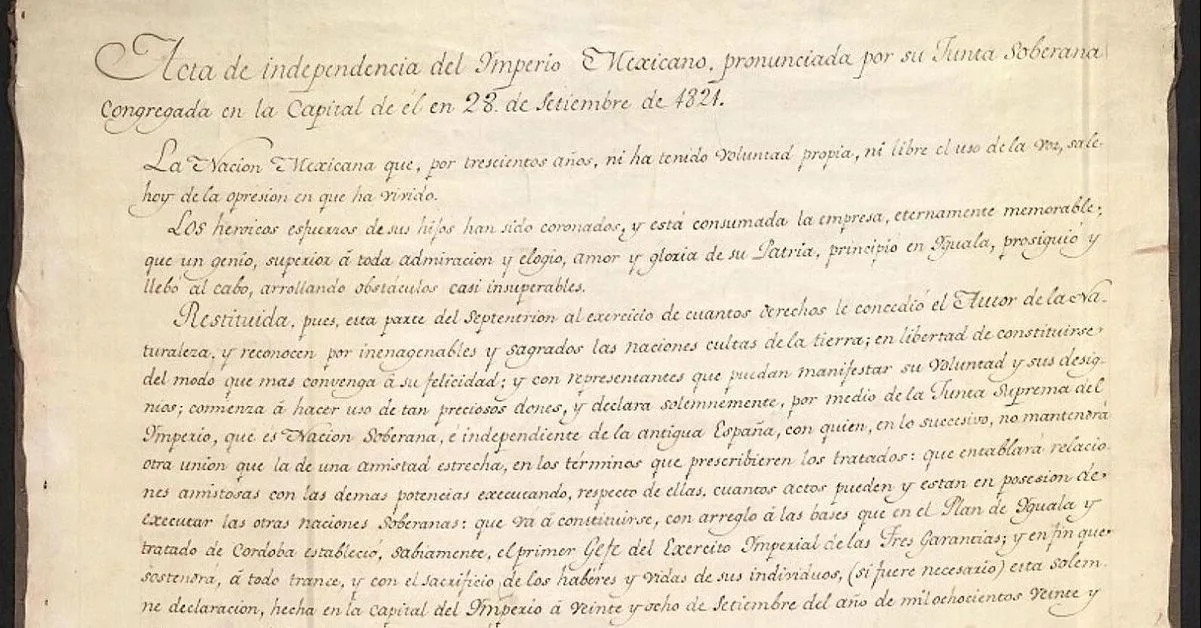 Acta de independencia del Imperio Mexicano, pronunciada por su Junta Soberana
Congregada en la Capital de él en 28. de Setiembre de 1821.
La Nacion Mexicana que, por trescientos años, ni ha tenido voluntad propia, ni libre el uso de la voz, sale
hoy de la opresion en que ha vivido.
Los heroicos esfuerzos de sus hijos han sido coronados, y está consumada la empresa, eternamente memorable,
que un genio, superior á toda admiracion y elogio, amor y gloria de su Patria, principió en Iguala, prosiguió y
llebó al cabo, arrollando obstáculos casi insuperables.
Restituida, pues, esta parte del Septentrion al exercicio de cuantos derechos le concedió el Autor de la Na-
turaleza, y reconocen por inenagenables y sagrados las naciones cultas de la tierra; en libertad de constituirse
del modo que mas convenga á su felicidad; y con representantes que puedan manifestar su voluntad y sus desig-
nios; comienza á hacer uso de tan preciosos dones, y declara solemnemente, por medio de la Junta Suprema del
Imperio, que es Nacion Soberana, é independiente de la antigua España, con quien, en lo succesivo, no mantendrá
otra union que la de una amistad estrecha, en los términos que prescribieren los tratados: que entablará relacio-
nes amistosas con las demas potencias executando, respecto de ellas, cuantos actos pueden y estan en posesion de
executar las otras naciones soberanas: que vá á constituirse, con arreglo á las bases que en el Plan de Iguala y
tratado de Cordoba estableció, sabiamente, el primer Gefe del Exercito Imperial de las Tres Garantias; y en fin que
sostendrá, á todo trance, y con el sacrificio de los haberes y vidas de sus individuos, (si fuere necesario) esta solem-
ne declaracion, hecha en la capital del Imperio á veinte y ocho de Setiembre del año de mil ochocientos veinte y